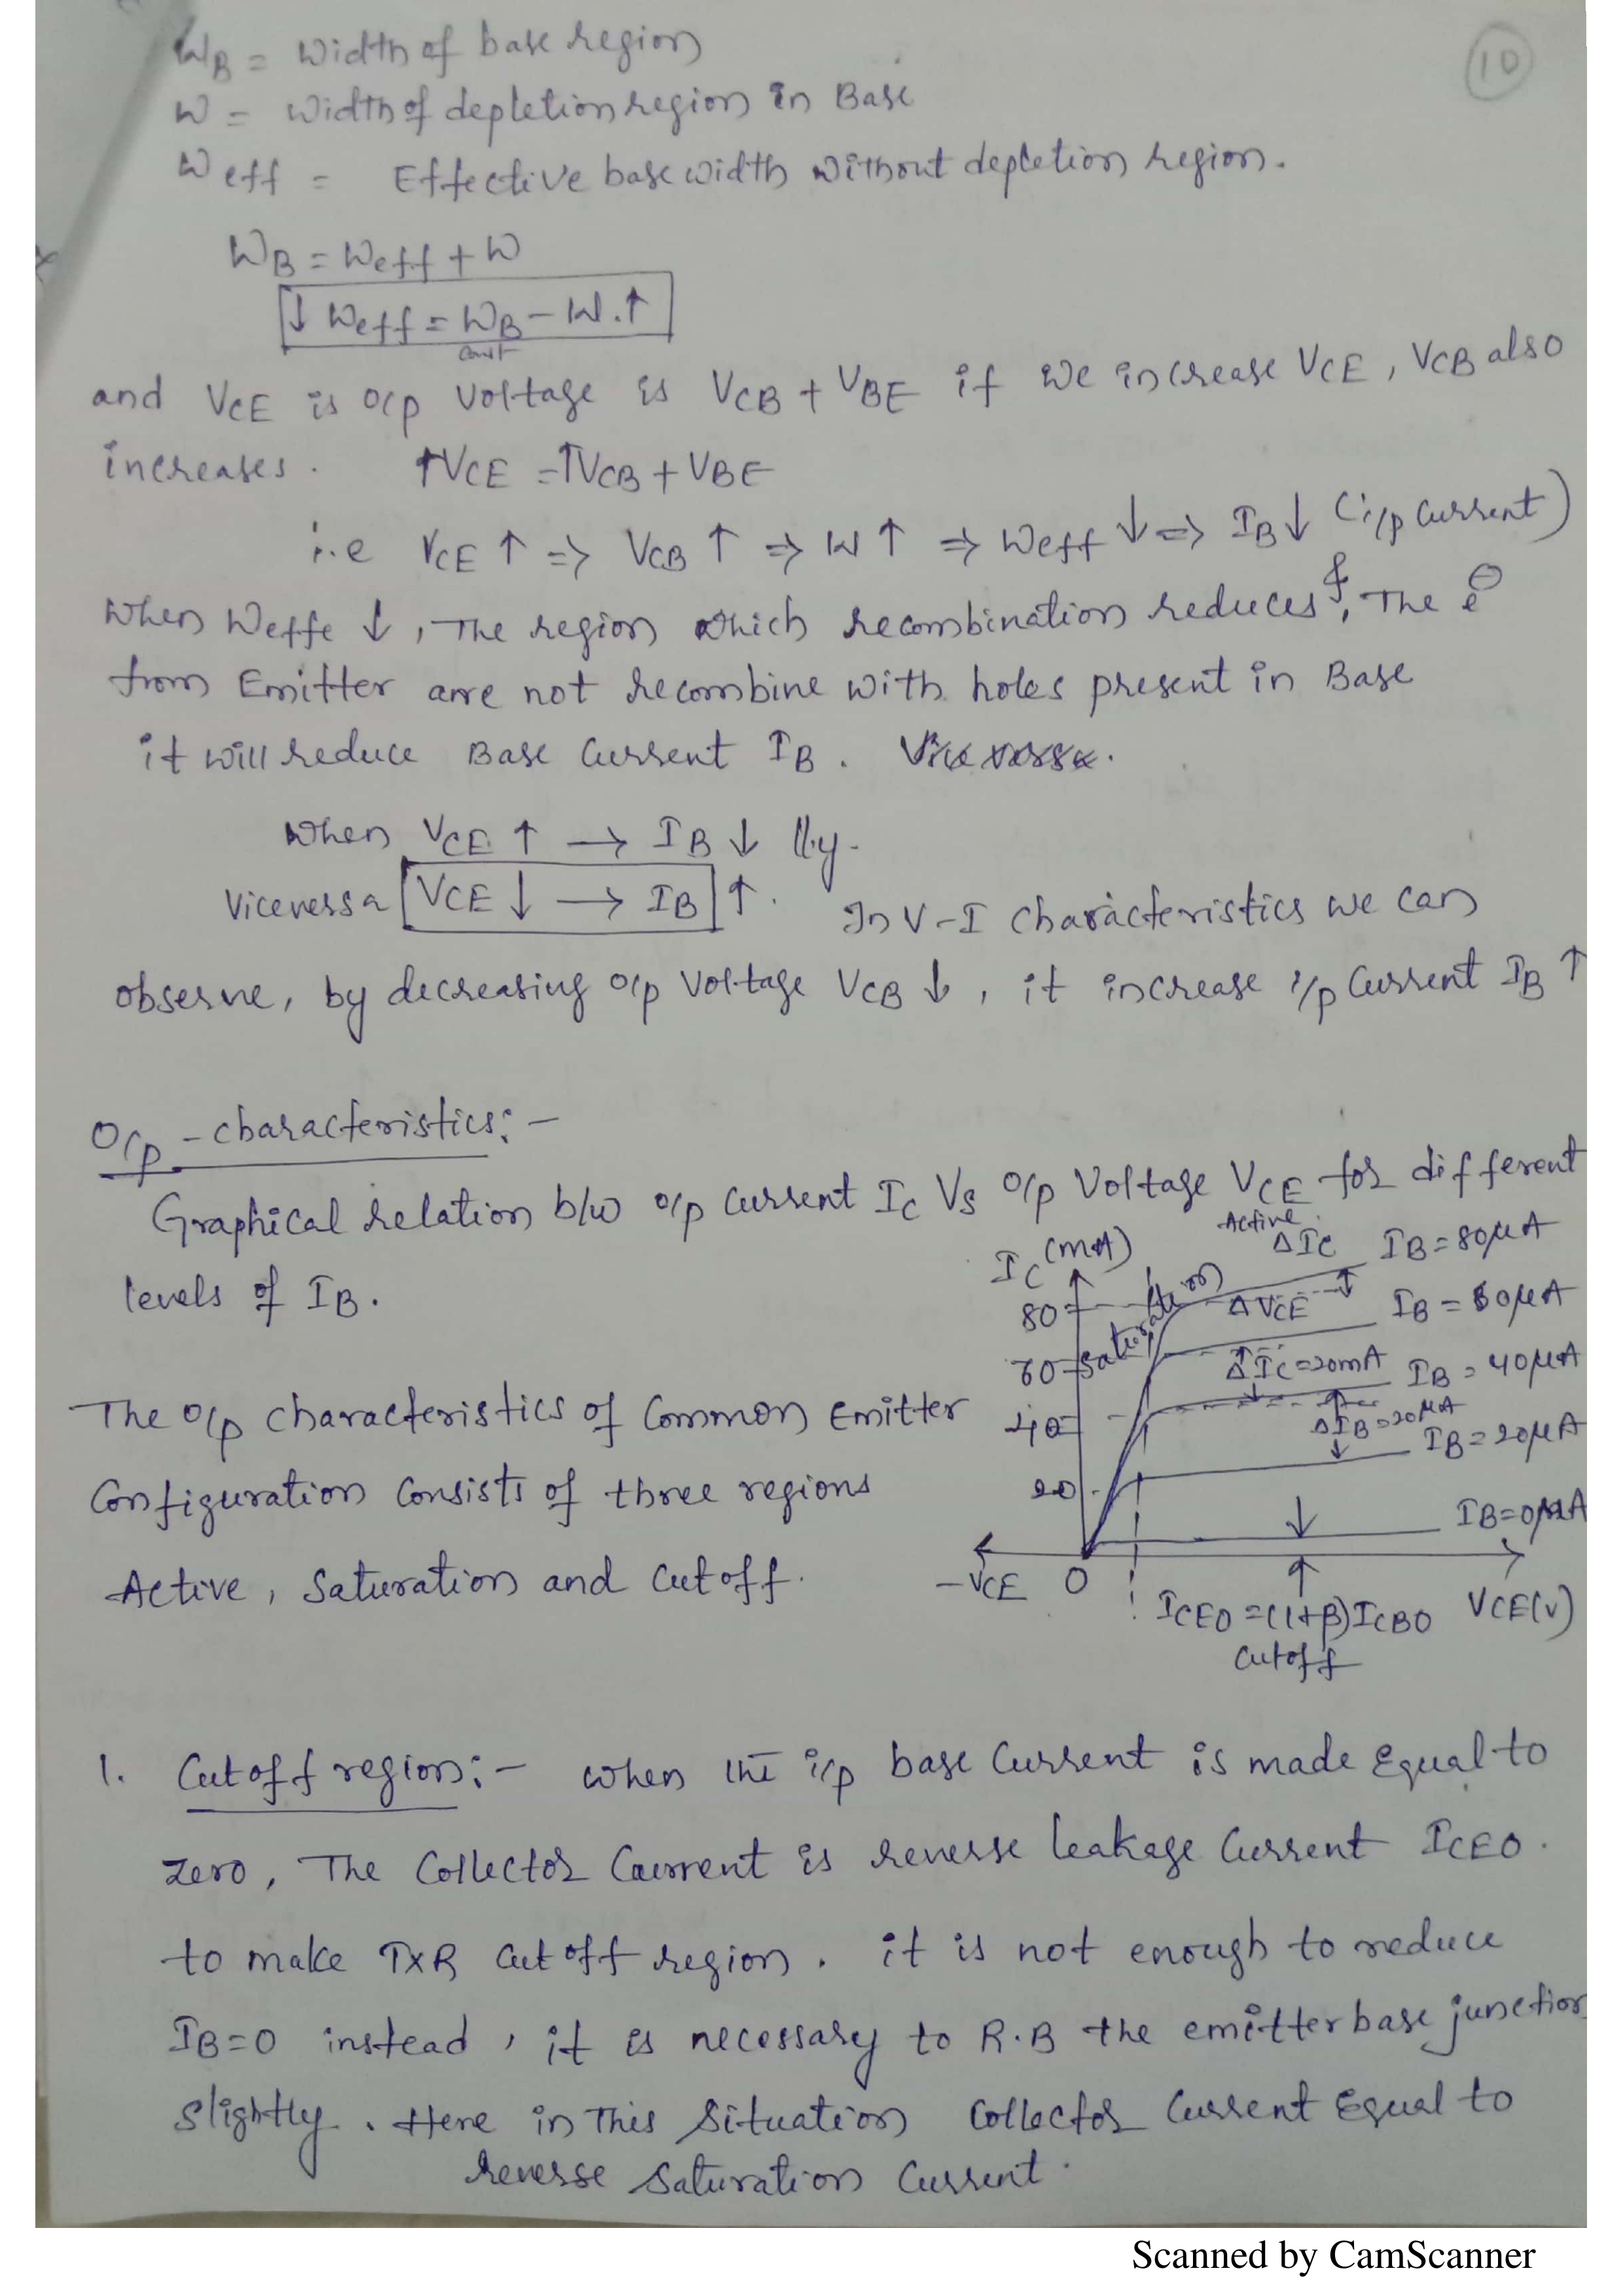 10
WB = Width of base region
W = Width of depletion region in Base
Weff = Effective base width without depletion region.
WB = Weff + W
↓ Weff = WB - W.↑
const
and VCE is o/p voltage is VCB + VBE if we increase VCE, VCB also
increases. ↑VCE = ↑VCB + VBE
i.e VCE ↑ => VCB ↑ => W ↑ => Weff ↓ => IB ↓ (i/p current)
When Weffe ↓, The region which recombination reduces &, The e⊖
from Emitter are not recombine with holes present in Base
it will reduce Base Current IB. Vice versa.
When VCE ↑ → IB ↓ lly.
Viceversa VCE ↓ → IB ↑. In V-I characteristics we can
observe, by decreasing o/p Voltage VCB ↓, it increase i/p Current IB ↑
O/p - characteristics:-
Graphical relation b/w o/p current IC Vs o/p Voltage VCE for different
levels of IB.
IC (mA)
Active
ΔIC
IB = 80μA
80
saturation
ΔVCE
IB = 60μA
60
ΔIC = 20mA
IB = 40μA
40
ΔIB = 20μA
IB = 20μA
20
IB = 0μA
-VCE 0
ICEO = (1+β)ICBO VCE(V)
Cutoff
The o/p characteristics of Common Emitter
Configuration Consists of three regions
Active, Saturation and Cutoff.
1. Cutoff region:- when the i/p base Current is made Equal to
zero, The Collector Current is reverse leakage Current ICEO.
to make TXR Cut off region. it is not enough to reduce
IB=0 instead, it is necessary to R.B the emitter base junction
slightly. Here in This Situation Collector Current Equal to
reverse Saturation Current.
Scanned by CamScanner